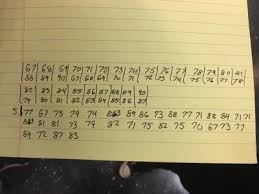 67 68 69 70 71 72 73 74 75 76 77 78 79 80 81
88 89 90 67 68 69 70 71 72 73 74 75 76 77 78
82 83 84 85 86 87 88 89 90
79 80 81 82 83 84 85 86 87
5. 77 67 73 79 74 83 89 86 73 88 77 71 88 84 71 71
83 81 81 73 79 82 71 75 82 75 70 67 73 77
89 72 87 83